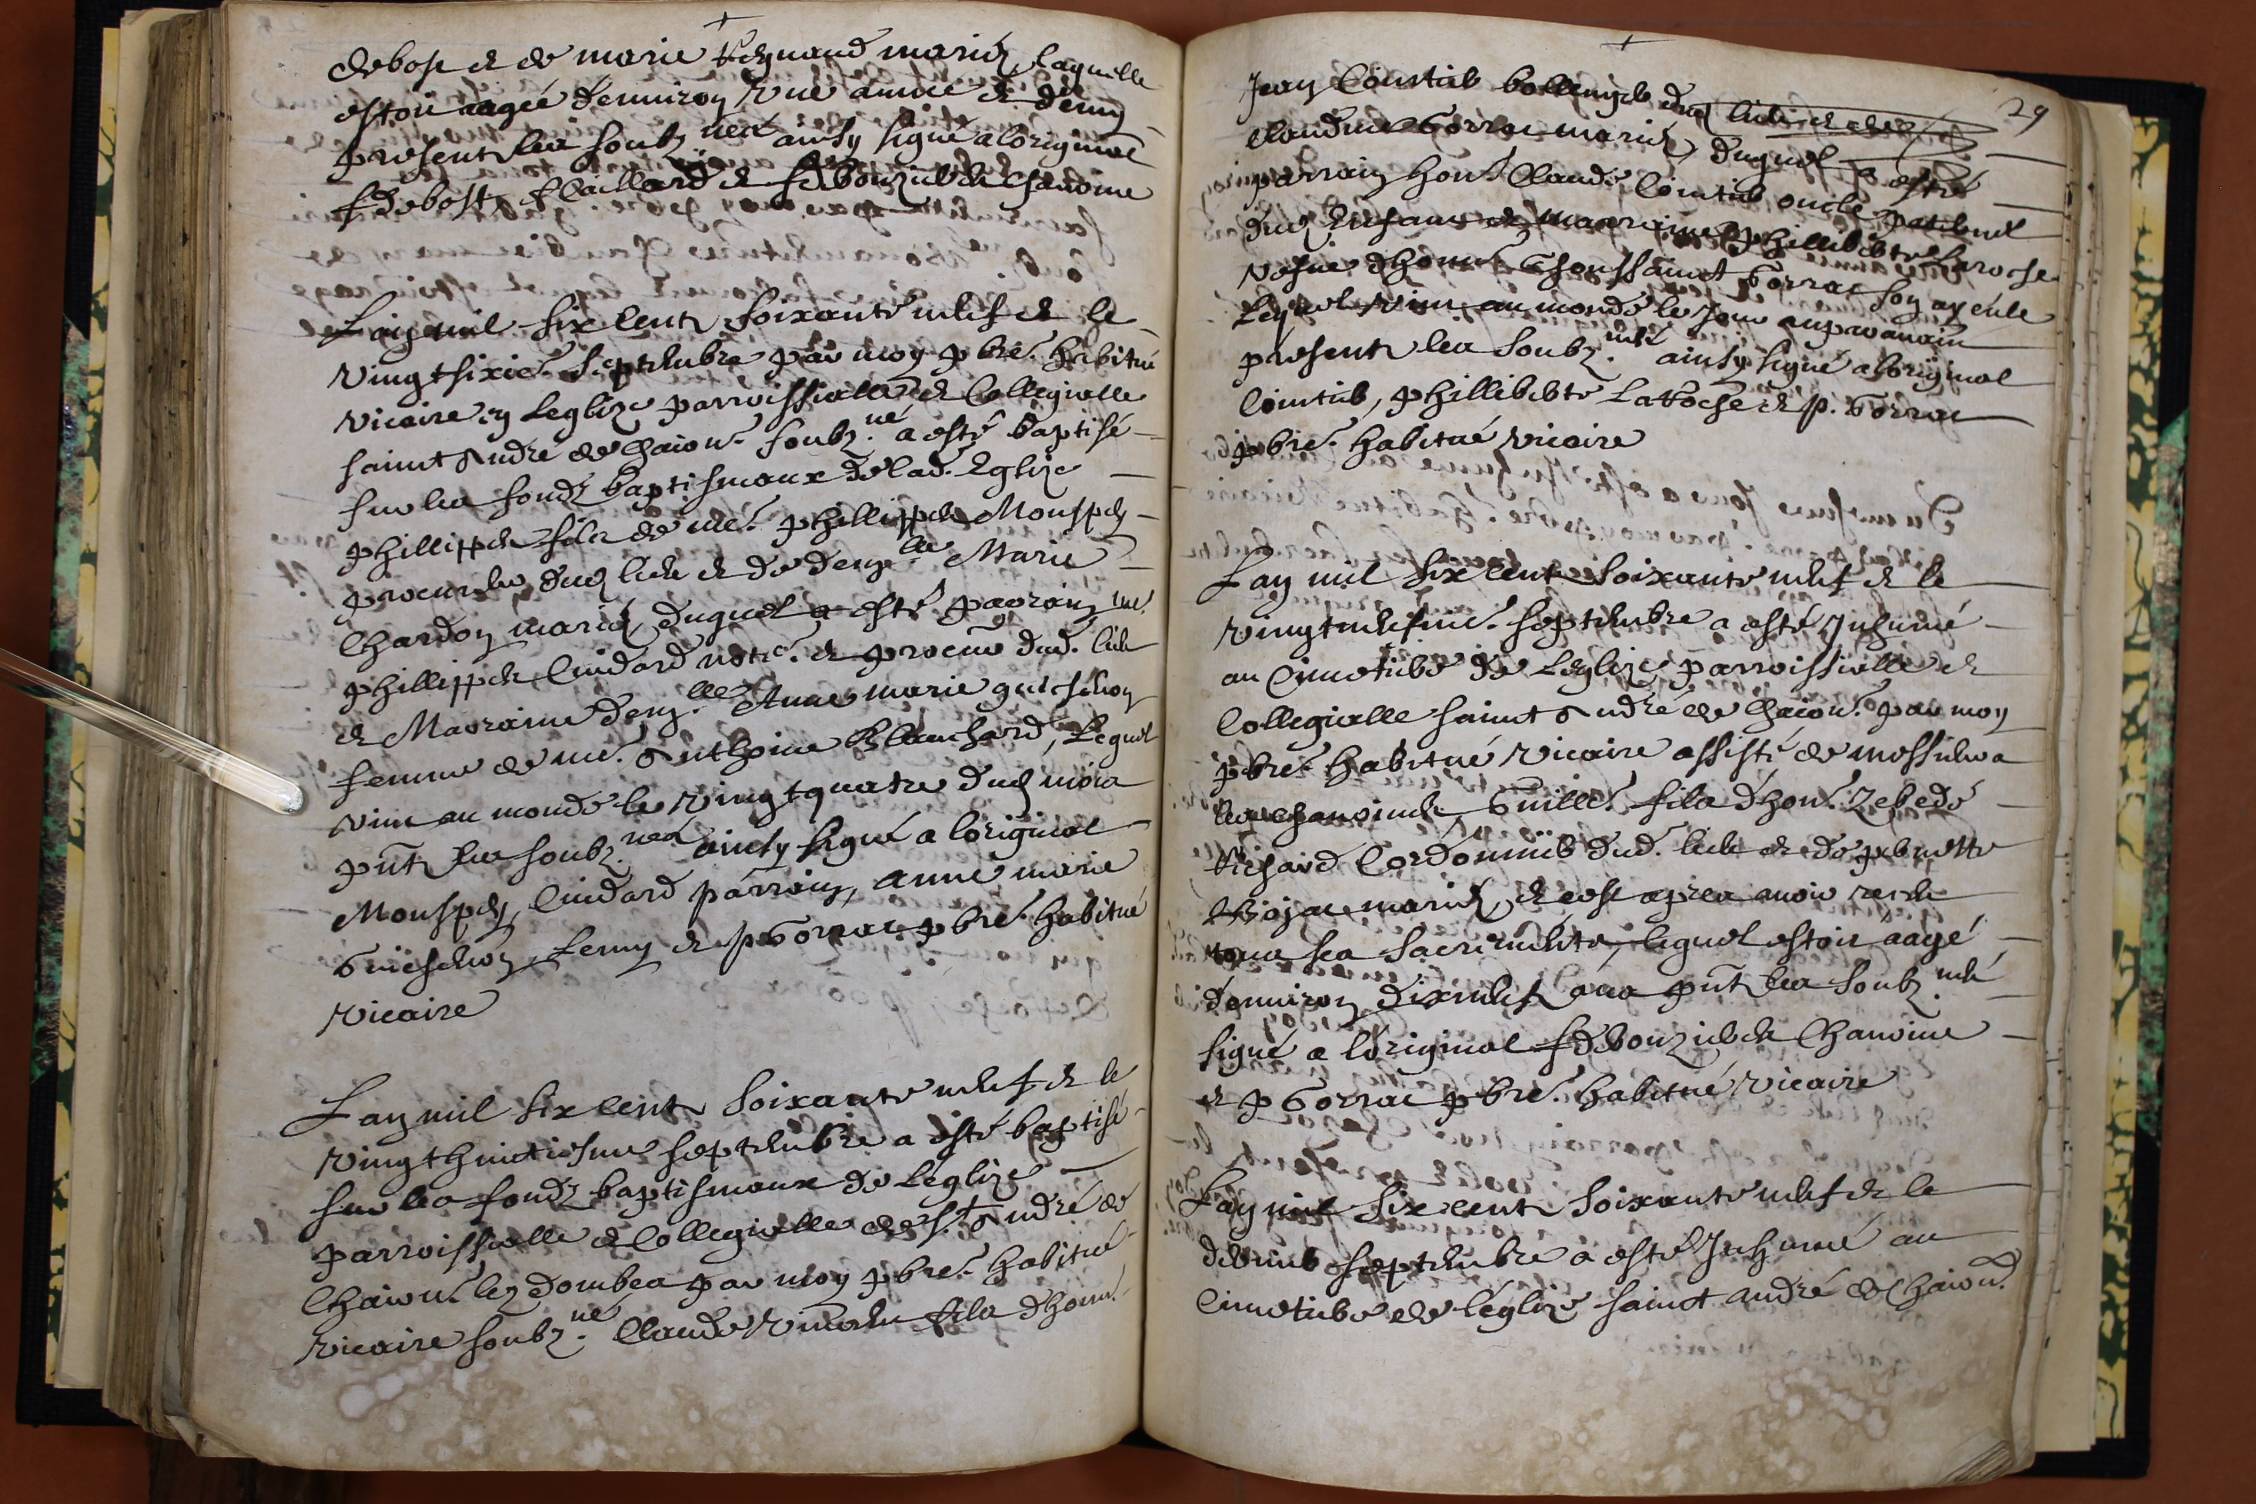 debost et de marie Reynaud mariez, laquelle
estoit aagée denuiron vne année et demy
presents les soubz.nés ainsy signé a loriginal
f debost, Gaillard et f debouzieken chanoine
Lan mil six cents soixante neuf et le
vingtsixie. septembre par moy pbre. habitué
vicaire en Leglize parroissialle et Collegialle
sainct Andre de Chaion. soubz.né a esté baptisé
sur les fondz baptismaux de lad. Eglize
phillippes fils de me. phillippes Monspey
procureur dud lieu et de demz.lle Marie
Chardon mariez, duquel a esté parrain me.
phillippes Cuidard notre. et procur. dud. lieu
et Marraine demz.lle Anne marie guicheñon
femme de me. Anthoine Blanchard, Lequel
vint au monde le vingtquatre dud mois
pnts les soubz.nés ainsy signé a loriginal
Monspey, Cuidard parrain, anne marie
Guichenon, Lemy et p Gorrat pbre. habitué
vicaire
Lan mil six cents soixante neuf et le
vingthuictiesme septembre a esté baptisé
sur les fondz baptismaux de Leglize
parroissialle et Collegialle de St. Andre de
Chaion. lez dombes par moy pbre. habitué
vicaire soubz.né Claude fils dhonn.
29
Jean Contub bollengeb dud lieu et de
claudine Gorrat mariez, duquel a esté
parrain hon. Claude Contub oncle paternel
dud Enfant et marraine phillibebte Laroche
vefue dhonn. Thoussainct Gorrat son ayeule
Lequel vint au monde le jour auparauant
presents les soubz.nés ainsy signé a loriginal
Contub, phillibebte LaRoche et p. Gorrat
pbre. habitué vicaire
Lan mil six cents soixante neuf et le
vingtneufuie. septembre a esté Inhumé
au Cimetiebe de Leglize parroissialle et
Collegialle sainct Andre de Chaion. par moy
pbre. habitué vicaire assisté de messieurs
les chanoines, Guille. fils dhon. Zebedé
Richard Cordonnieb dud. lieu et de pebnette
mariez, et cest apres auoir receu
tous ses sacrements, lequel estoit aagé
denuiron dixneuf ans pnts les soubz.né
signé a loriginal f debouzieken Chanoine
et p Gorrat pbre. habitué vicaire
Lan mil six cents soixante neuf et le
debnieb septembre a esté Inhumé au
Cimetiebe de léglize sainct andré de Chaion.